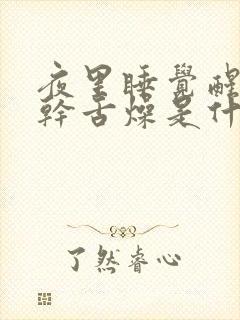 夜里睡覺醒
幹舌燥是什
了然睿心